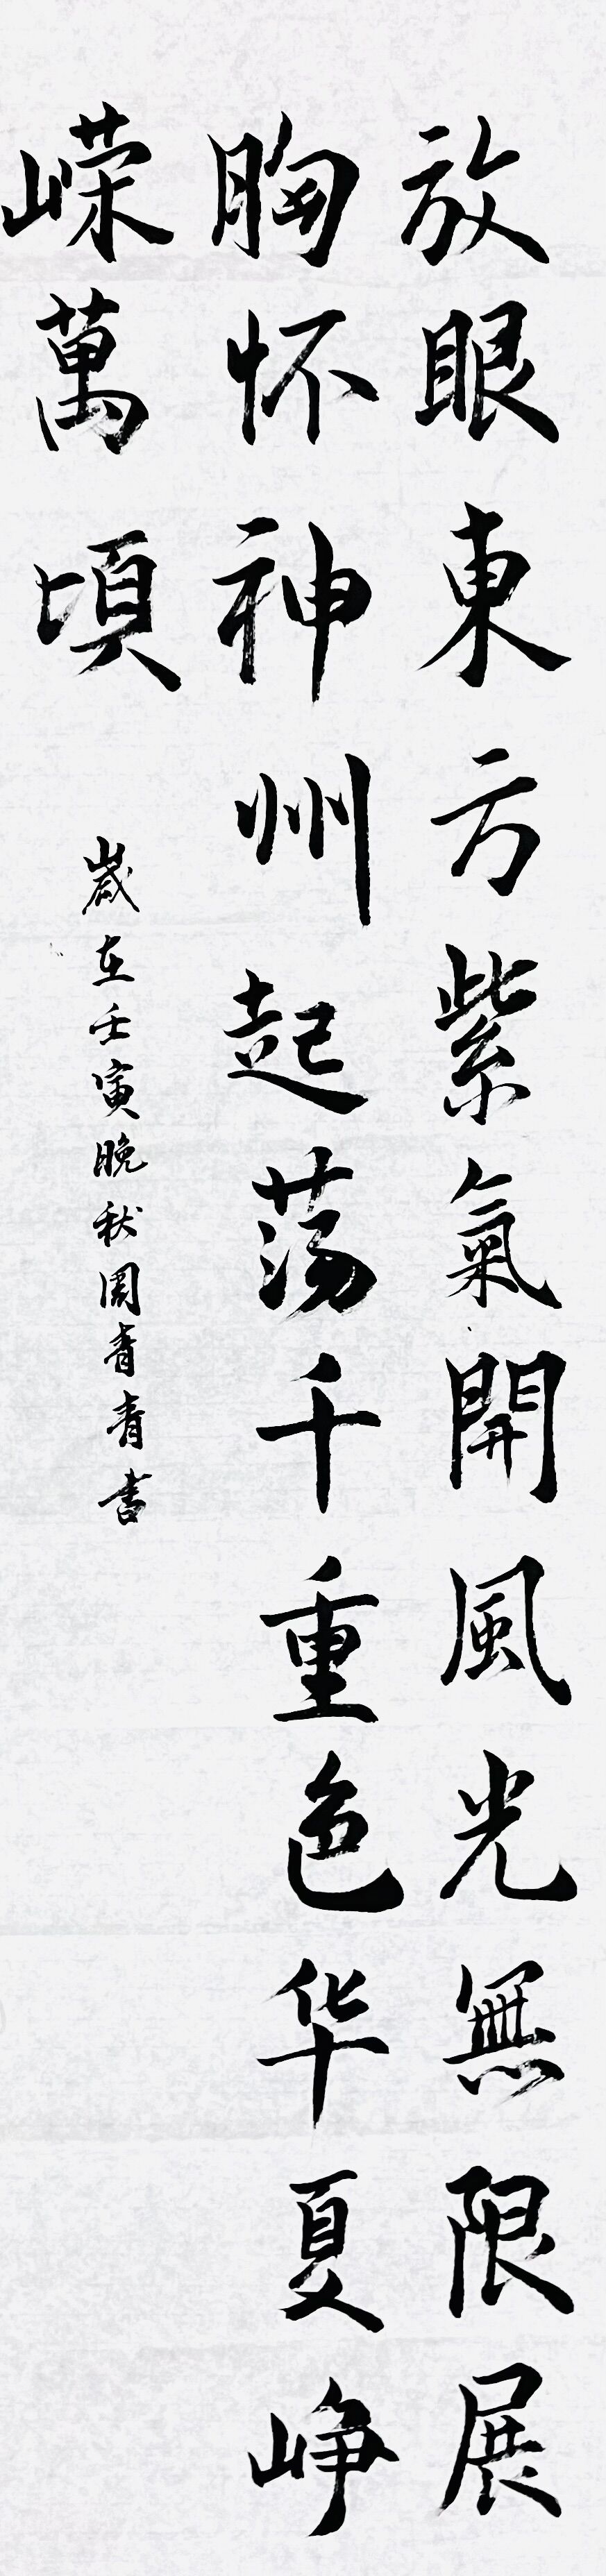 放眼東方紫氣開風光無限展
胸怀神州起荡千重色华夏峥
嵘萬頃
歲在壬寅晚秋周青青书